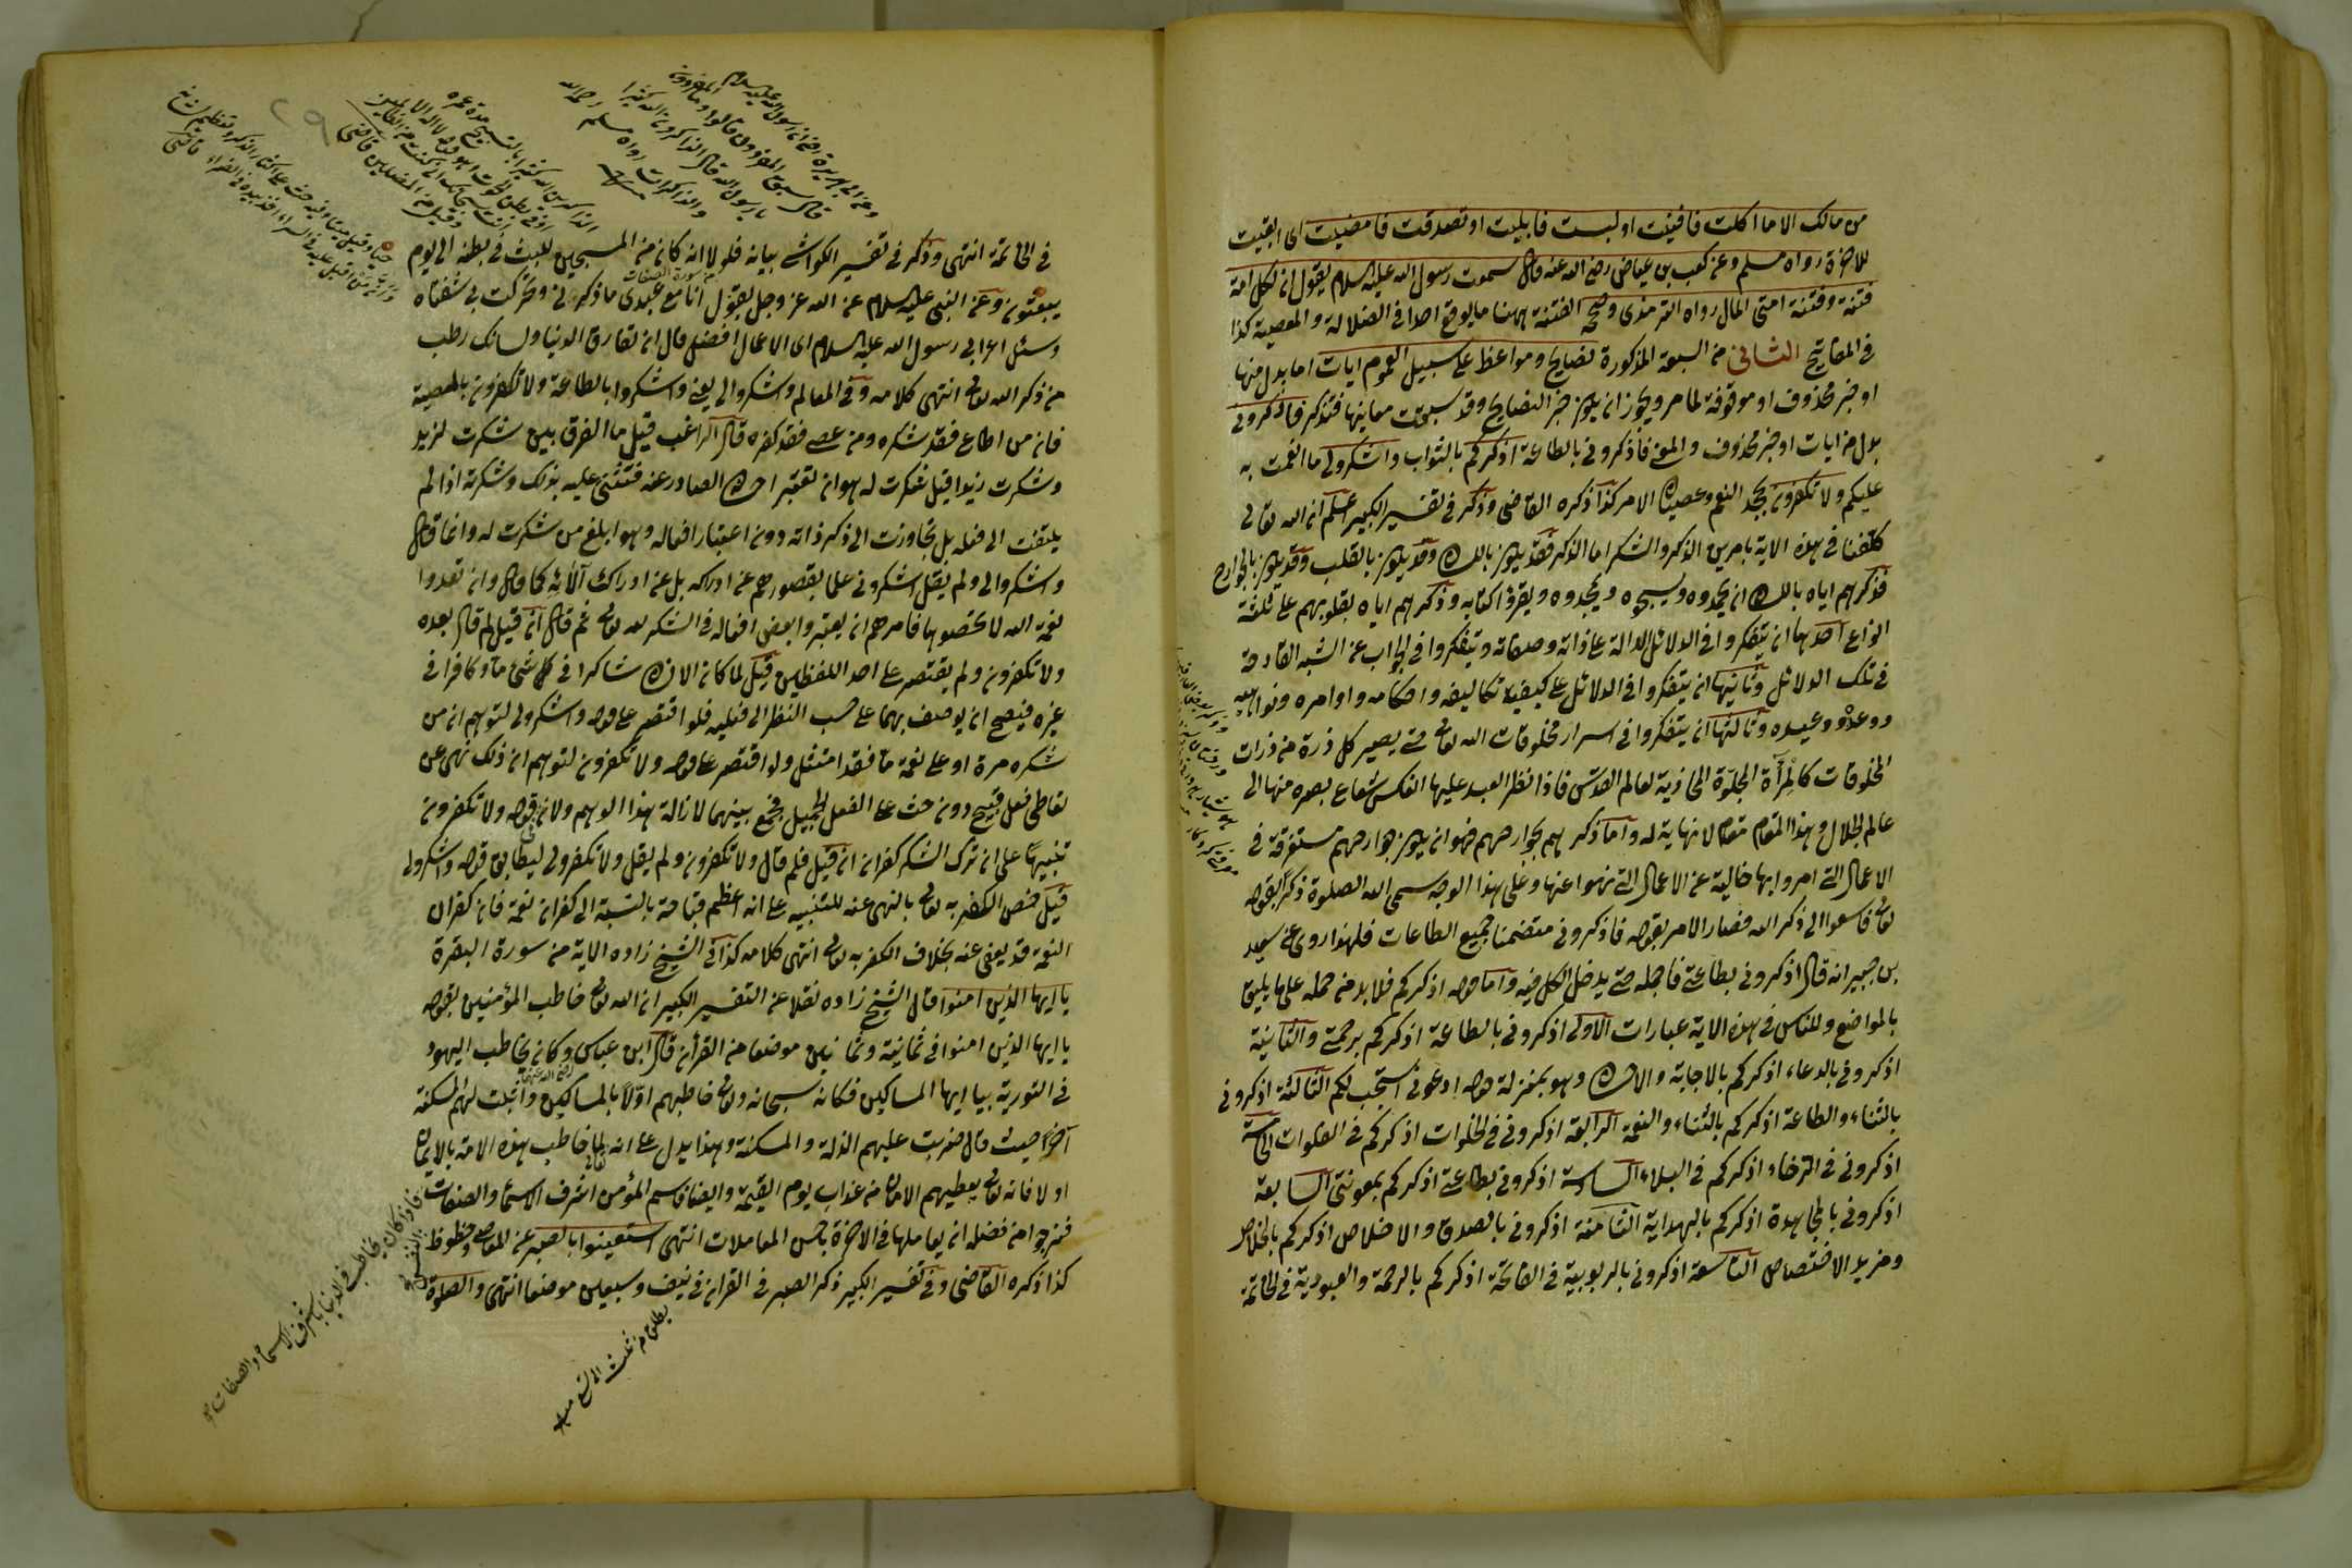 من مالك الا ما اكلت فافنيت او لبست فابليت او تصدقت فامضيت اى ابقيت
للاخرة رواه مسلم وعن كعب بن عياض رضى الله عنه قال سمعت رسول الله عليه السلام يقول ان لكل امة
فتنة وفتنة امتى المال رواه الترمذى وصححه الفتنة ههنا ما يوقع احدا فى الضلالة والمعصية كذا
فى المفاتيح الثانى من السبعة المذكورة نصايح ومواعظ على سبيل العموم ايات اما بدل منها
او خبر محذوف او موقوفة لما مر ويجوز ان يكون خبر النصايح وقد سبقت معاينها فتذكر فاذكرونى
بدل من ايات او خبر محذوف والمعنى فاذكرونى بالطاعة اذكركم بالثواب واشكرولى ما انعمت به
عليكم ولا تكفرون بجحد النعم وعصيان الامر كذا ذكره القاضى وذكر فى تفسير الكبير اعلم ان الله تعالى
كلفنا فى هذه الاية بامرين الذكر والشكر اما الذكر فقد يكون باللسان وقد يكون بالقلب وقد يكون بالجوارح
فذكرهم اياه باللسان ان يحمدوه ويسبحوه ويمجدوه ويقرؤا كتابه وذكرهم اياه بقلوبهم على ثلثة
انواع احدها ان يتفكروا فى الدلائل الدالة على ذاته وصفاته ويتفكروا فى الجواب عن الشبه القادحة
فى تلك الدلائل وثانيها ان يتفكروا فى الدلائل على كيفية تكاليفه واحكامه واوامره ونواهيه
ووعده ووعيده وثالثها ان يتفكروا فى اسرار مخلوقات الله تعالى حتى يصير كل ذرة من ذرات
المخلوقات كالمرآة المجلوة المحاذية لعالم القدس فاذا نظر العبد عليها انعكس شعاع بصره منها الى
عالم الجلال وهذا المقام مقام لا نهاية له واما ذكرهم بجوارحهم فهو ان يكون جوارحهم مستغرقة فى
الاعمال التى امروا بها خالية عن الاعمال التى نهوا عنها وعلى هذا الوجه سمى الله الصلوة ذكرا بقوله
تعالى فاسعوا الى ذكر الله فصار الامر بقوله فاذكرونى متضمنا جميع الطاعات فلهذا روى عن سعيد
بن جبير انه قال اذكرونى بطاعتى فاجمله حتى يدخل الكل فيه واما قوله اذكركم فلا بد من حمله على ما يليق
بالمواضع وللناس فى هذه الاية عبارات الاولى اذكرونى بالطاعة اذكركم برحمتى والثانية
اذكرونى بالدعاء اذكركم بالاجابة والاحسان وهو بمنزلة قوله ادعونى استجب لكم الثالثة اذكرونى
بالثناء والطاعة اذكركم بالثناء والنعمة الرابعة اذكرونى فى الخلوات اذكركم فى الفلوات الخامسة
اذكرونى فى الرخاء اذكركم فى البلاء السادسة اذكرونى بطاعتى اذكركم بمعونتى السابعة
اذكرونى بالمجاهدة اذكركم بالهداية الثامنة اذكرونى بالصدق والاخلاص اذكركم بالخلاص
ومزيد الاختصاص التاسعة اذكرونى بالربوبية فى الفاتحة اذكركم بالرحمة والعبودية فى الخاتمة
وعن ابى هريرة رضى ان رسول الله عليه السلام
قال سبق المفردون قالوا وما المفردون
يا رسول الله قال الذاكرون الله كثيرا
والذاكرات رواه مسلم رحمه الله
فى الخاتمة انتهى وذكر فى تفسير الكواشى بيانه فلولا انه كان من المسبحين للبث فى بطنه الى يوم
يبعثون وعن النبى عليه السلام عن الله عز وجل يقول انا مع عبدى ما ذكرنى وتحركت بى شفتاه
وسئل اعرابى رسول الله عليه السلام اى الاعمال افضل قال ان تفارق الدنيا ولسانك رطب
من ذكر الله تعالى انتهى كلامه وفى المعالم واشكروا لى يعنى واشكروا بالطاعة ولا تكفرون بالمعصية
فان من اطاع فقد شكره ومن عصى فقد كفره قال الراغب قيل ما الفرق بين شكرت لزيد
وشكرت زيدا قيل شكرت له هو ان تعتبر احسان الصادر عنه فتثنى عليه بذلك وشكرته اذا لم
يلتفت الى فعله بل تجاوزت الى ذكر ذاته دون اعتبار افعاله وهو ابلغ من شكرت له وانما قال
واشكروا لى ولم يقل اشكرونى علما بقصورهم عن ادراكه بل عن ادراك آلائه كما قال وان تعدوا
نعمة الله لا تحصوها فامرهم ان يعتبروا بعض افعاله فى الشكر لله تعالى ثم قال ان قيل لم قال بعده
ولا تكفرون ولم يقتصر على احد اللفظين قيل لما كان الانسان شاكرا فى كل شئ ما وكافرا فى
غيره فيصح ان يوصف بهما على حسب النظر الى فعليه فلو اقتصر على قوله واشكرولى لتوهم ان من
شكره مرة او على نعمة ما فقد امتثل ولو اقتصر على قوله ولا تكفرون لتوهم ان ذلك نهى عن
تعاطى فعل قبيح دون حث على الفعل الجميل فجمع بينهما لازالة هذا الوهم ولان قوله ولا تكفرون
تنبيها على ان ترك الشكر كفران ان قيل فلم قال ولا تكفرون ولم يقل ولا تكفرولى ليطابق قوله واشكرولى
قيل خص الكفر به تعالى بالنهى عنه للتنبيه على انه اعظم قباحة بالنسبة الى كفران نعمة فان كفران
النعمة قد يعفى عنه بخلاف الكفر به تعالى انتهى كلامه كذا فى الشيخ زاده الاية من سورة البقرة
يا ايها الذين امنوا قال الشيخ زاده نقلا عن التفسير الكبير ان الله تعالى خاطب المؤمنين بقوله
يا ايها الذين امنوا فى ثمانية وثمانين موضعا من القرآن قال ابن عباس وكان يخاطب اليهود
فى التورية بيا ايها المساكين فكانه سبحانه وتعالى خاطبهم اولا بالمساكين واثبت لهم المسكنة
آخرا حيث قال ضربت عليهم الذلة والمسكنة وهذا يدل على انه لما خاطب هذه الامة بالايمان
اولا فانه تعالى يعطيهم الامان من عذاب يوم القيمة وايضا فاسم المؤمن اشرف الاسماء والصفات
فنرجوا من فضله ان يعاملها فى الاخرة باحسن المعاملات انتهى استعينوا بالصبر عن المعاصى وحظوظ النفس
كذا ذكره القاضى وفى تفسير الكبير ذكر الصبر فى القران فى نيف وسبعين موضعا انتهى والصلوة
فاذا كان يخاطب فى الدنيا باشرف الاسماء والصفات